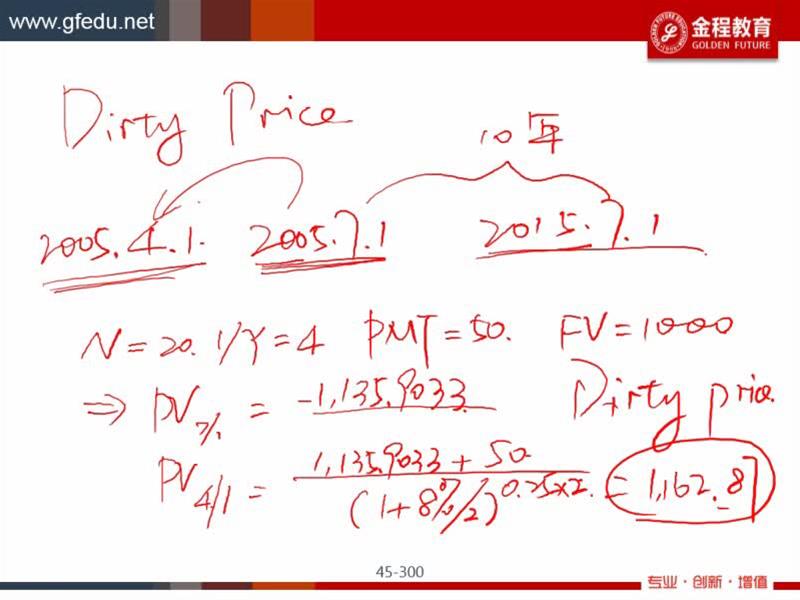 www.gfedu.net
金程教育
GOLDEN FUTURE
Dirty Price
10年
2005.4.1. 2005.7.1 2015.7.1
N=20. I/Y=4 PMT=50. FV=1000
⇒ PV7/1 = -1,135.9033 Dirty price.
PV4/1 = 1,135.9033 + 50 / (1+8%/2)^0.25×2. = 1,162.87
45-300
专业·创新·增值